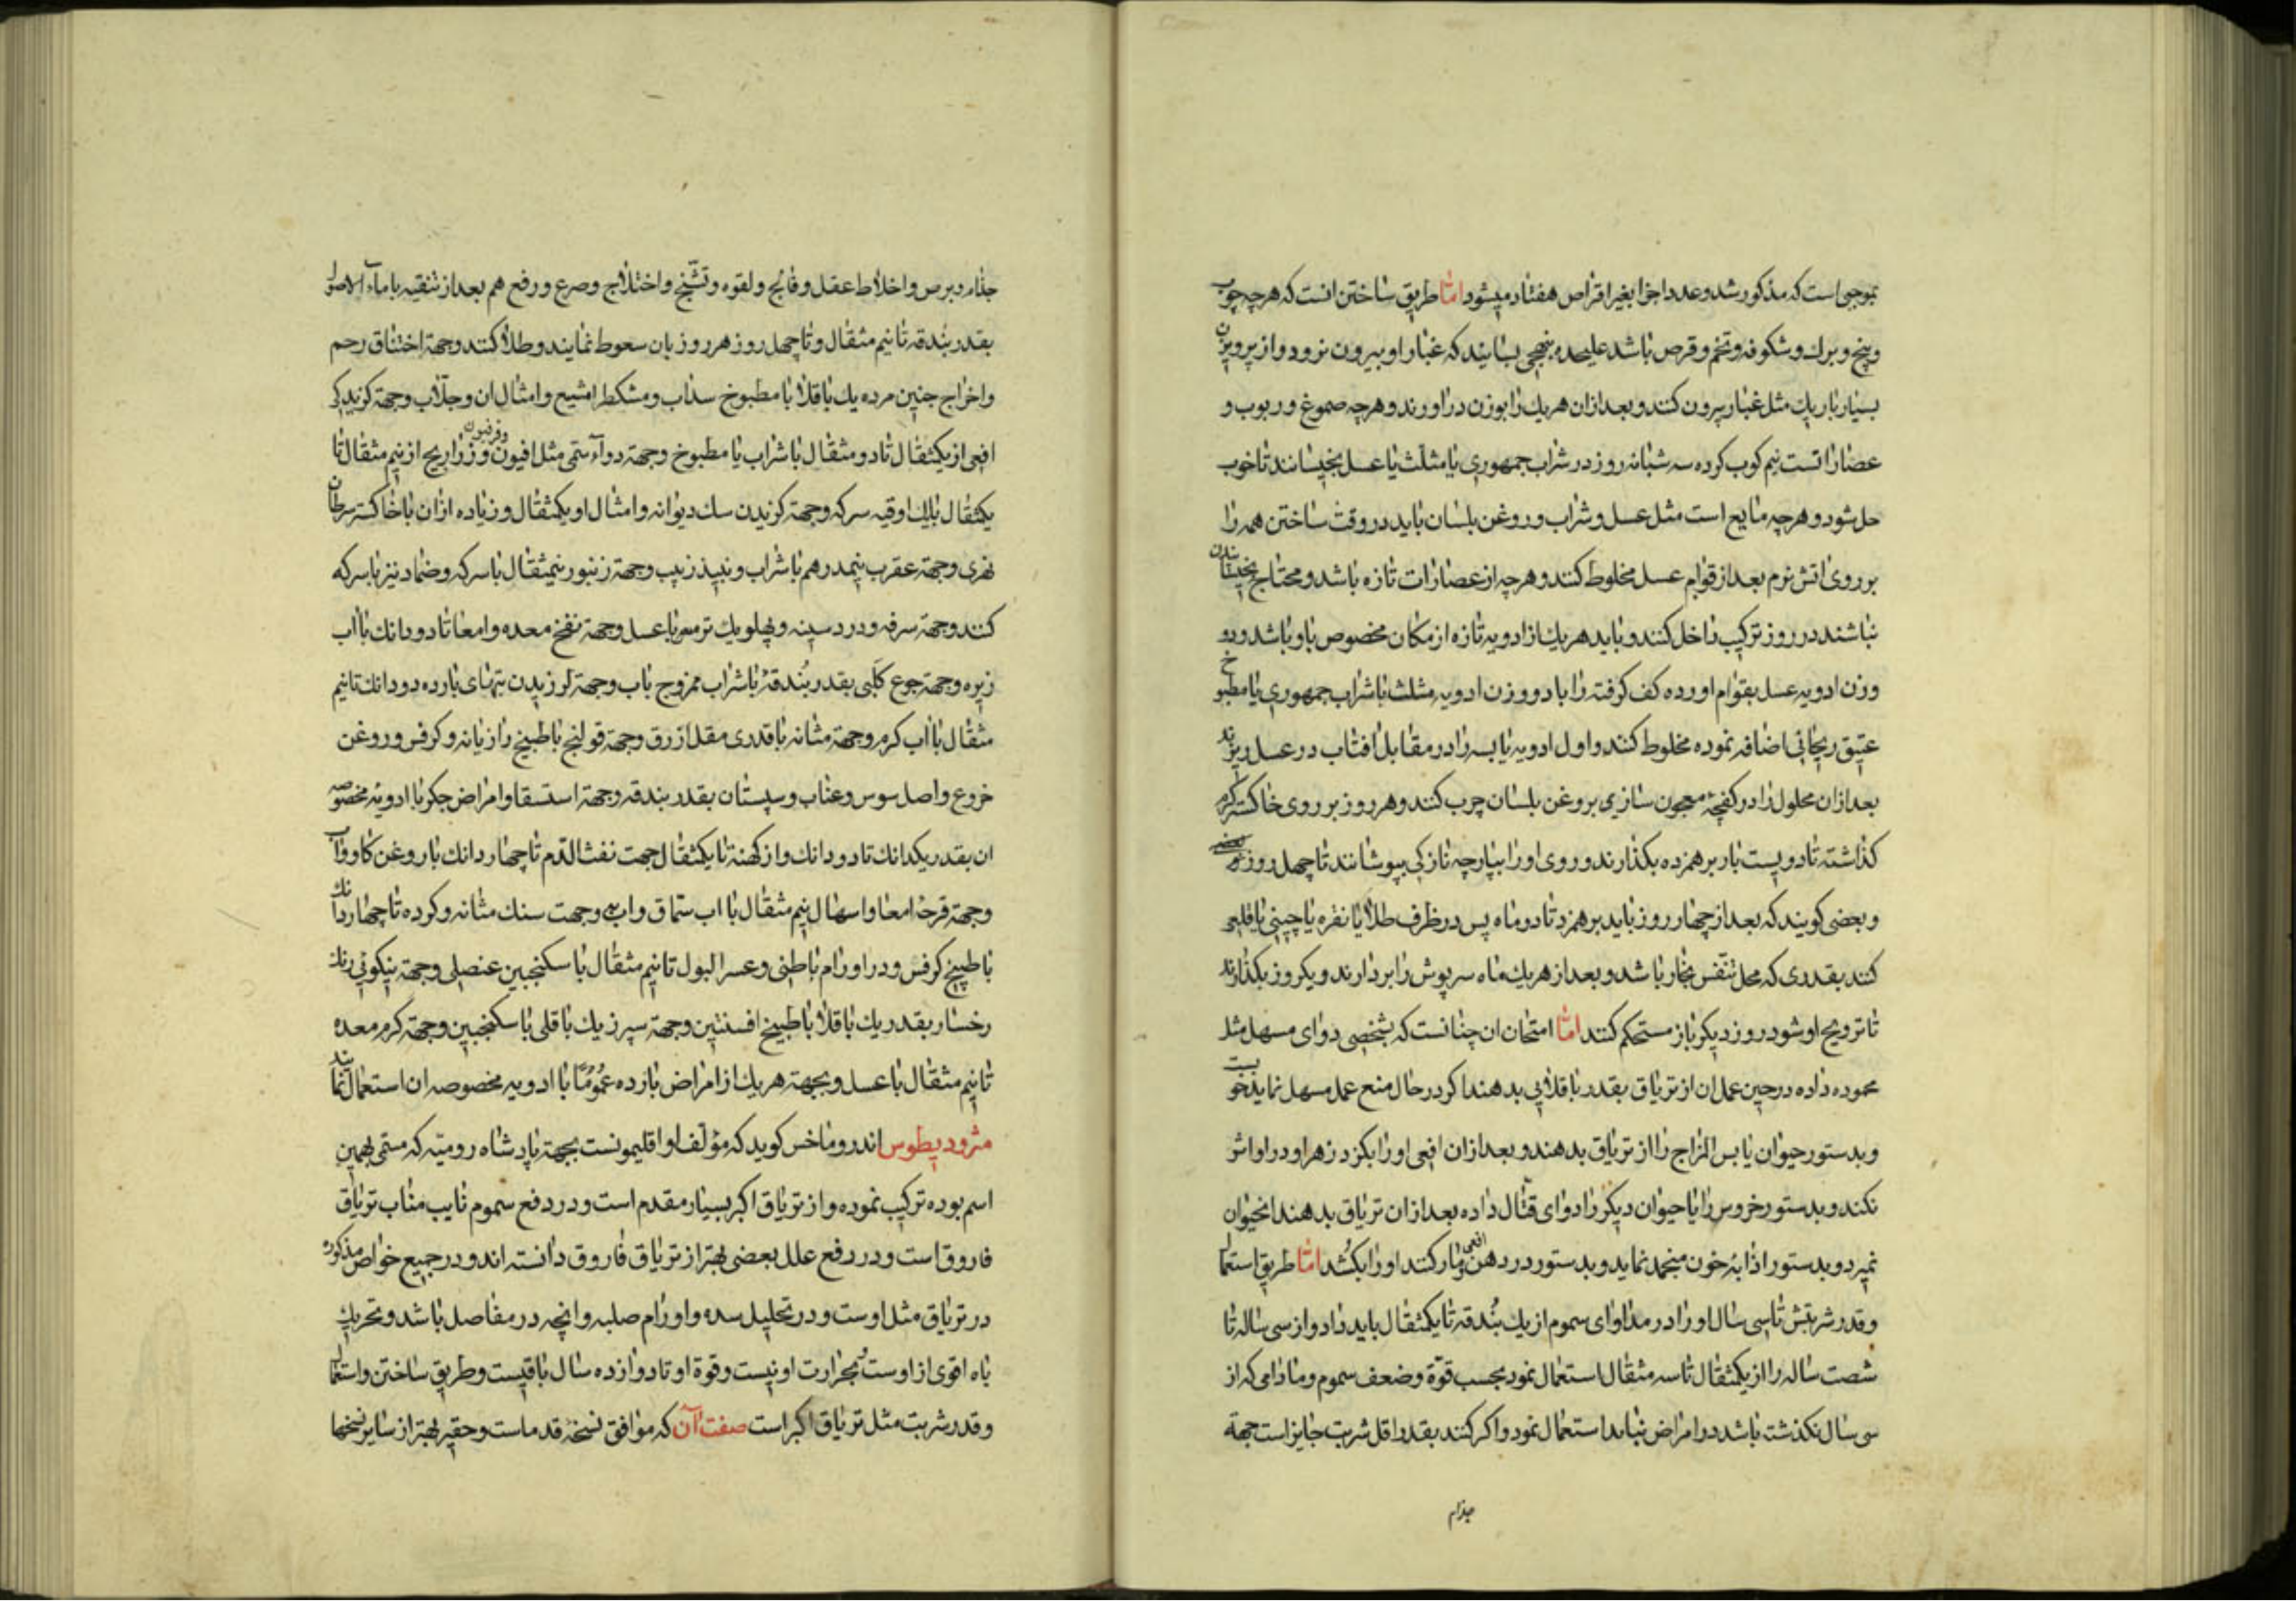 بموجبی است که مذکور شد و عدد اجزا بغیر اقراص هفتاد میشود امّا طریق ساختن انست که هرچه چوب
و بیخ و برک و شکوفه و تخم و قرص باشد علیحده بنهجی بسایند که غبار او بیرون نرود و از پرویزن
بسیار باریک مثل غبار بیرون کنند و بعد ازان هریک را بوزن دراورند و هرچه صموغ و ربوب و
عصاراتست نیم کوب کرده سه شبانه روز در شراب جمهوری یا مثلث یا عسل بخیسانند تا خوب
حل شود و هرچه مایع است مثل عسل و شراب و روغن بلسان باید در وقت ساختن همه را
بر روی اتش نرم بعد از قوام عسل مخلوط کنند و هرچه از عصارات تازه باشد و محتاج بخیسانیدن
نباشند در روز ترکیب داخل کنند و باید هریک از ادویه تازه از مکان مخصوص باو باشد و دو
وزن ادویه عسل بقوام اورده کف کرفته را با دو وزن ادویه مثلث با شراب جمهوری یا مطبوخ
عتیق ریحانی اضافه نموده مخلوط کنند و اول ادویه یابسه را در مقابل افتاب در عسل ریزند
بعد ازان محلول را در کفچهٔ معجون سازی بروغن بلسان چرب کنند و هر روز بر روی خاکستر کرم
کذاشته تا دویست بار برهم زده بکذارند و روی او را بپارچه نازکی بپوشانند تا چهل روز
و بعضی کویند که بعد از چهار روز باید برهم زد تا دو ماه پس در ظرف طلا یا نقره یا چینی یا قلعی
کنند بقدری که محل تنفّس بخار باشد و بعد از هر یک ماه سرپوش را بردارند و یکروز بکذارند
تا ترویح او شود روز دیکر باز مستحکم کنند امّا امتحان ان چنانست که بشخصی دوای مسهل مثل
محموده داده در حین عمل ان از تریاق بقدر باقلایی بدهند اکر در حال منع عمل مسهل نماید خوبست
و بدستور حیوان یابس المزاج را از تریاق بدهند و بعد ازان افعی او را بکزد زهر او در او اثر
نکند و بدستور خروس را یا حیوان دیکر را دوای قتّال داده بعد ازان تریاق بدهند انحیوان
نمیرد و بدستور اذابهٔ خون منجمد نماید و بدستور در دهن افعی و مار کنند او را بکُشد امّا طریق استعمال
و قدر شربتش تا سی سال او را در مداوای سموم از یک بُندقه تا یکمثقال باید داد و از سی ساله تا
شصت ساله را از یکمثقال تا سه مثقال استعمال نمود بحسب قوّة و ضعف سموم و مادامی که از
سی سال نکذشته باشد در امراض نباید استعمال نمود و اکر کنند بقدر اقل شربت جایز است جهة
جذام
جذام و برص و اخلاط عقل و فالج و لقوه و تشنّج و اختلاج و صرع و رفع هم بعد از تنقیه با ماء الاصول
بقدر بندقه تا نیم مثقال و تا چهل روز هر روز بان سعوط نمایند و طلا کنند و جهة اختناق رحم
و اخراج جنین مرده یک باقلا با مطبوخ سداب و مشکطرامشیع و امثال ان و جلّاب و جهة کزیدن
افعی از یکمثقال تا دو مثقال با شراب یا مطبوخ و جهة دواء سمّی مثل افیون و فرفیون و زراریح از نیم مثقال تا
یکمثقال با یک اوقیه سرکه و جهة کزیدن سک دیوانه و امثال او یکمثقال و زیاده ازان با خاکستر سرطان
نهری و جهة عقرب نیمدرهم با شراب و نبیذ زبیب و جهة زنبور نیمثقال با سرکه و ضماد نیز با سرکه
کنند و جهة سرفه و درد سینه و پهلو یک ترمس با عسل و جهة نفخ معده و امعا تا دو دانک با آب
زیره و جهة جوع کلبی بقدر بُندقهٔ با شراب ممزوج باب و جهة لرزیدن تبهای بارده دو دانک تا نیم
مثقال با آب کرم و جهة مثانه با قدری مقل ازرق و جهة قولنج با طبیخ رازیانه و کرفس و روغن
خروع و اصل سوس و عناب و سپستان بقدر بندقه و جهة استسقا و امراض جکر با ادویه مخصوصه
ان بقدر یکدانک تا دو دانک و از کهنهٔ تا یکمثقال جهت نفث الدّم تا چهار دانک با روغن کاو و آب
و جهة قرحهٔ امعا و اسهال نیم مثقال با اب سماق و اب به و جهت سنک مثانه و کرده تا چهار دانک
با طبیخ کرفس و در اورام باطنی و عسر البول تا نیم مثقال با سکنجبین عنصلی و جهة نیکوئی رنک
رخسار بقدر یک باقلا با طبیخ افسنتین و جهة سپرز یک باقلی با سکنجبین و جهة کرم معده
تا نیم مثقال با عسل و بجهة هر یک از امراض بارده عُمُومًا با ادویه مخصوصه ان استعمال نمایند
مثرودیطوس اندروماخس کوید که مؤلّف او اقلیمونست بجهة پادشاه رومیّه که مسمّی بهمین
اسم بوده ترکیب نموده و از تریاق اکبر بسیار مقدم است و در دفع سموم نایب مناب تریاق
فاروق است و در دفع علل بعضی بهتر از تریاق فاروق دانسته اند و در جمیع خواص مذکوره
در تریاق مثل اوست و در تحلیل سده و اورام صلبه و انچه در مفاصل باشد و تحریک
باه اقوی از اوست بحرارت او نیست و قوة او تا دوازده سال باقیست و طریق ساختن و استعمال
و قدر شربت مثل تریاق اکبر است صفت آن که موافق نسخهٔ قدماست و حقیر بهتر از سایر نسخها